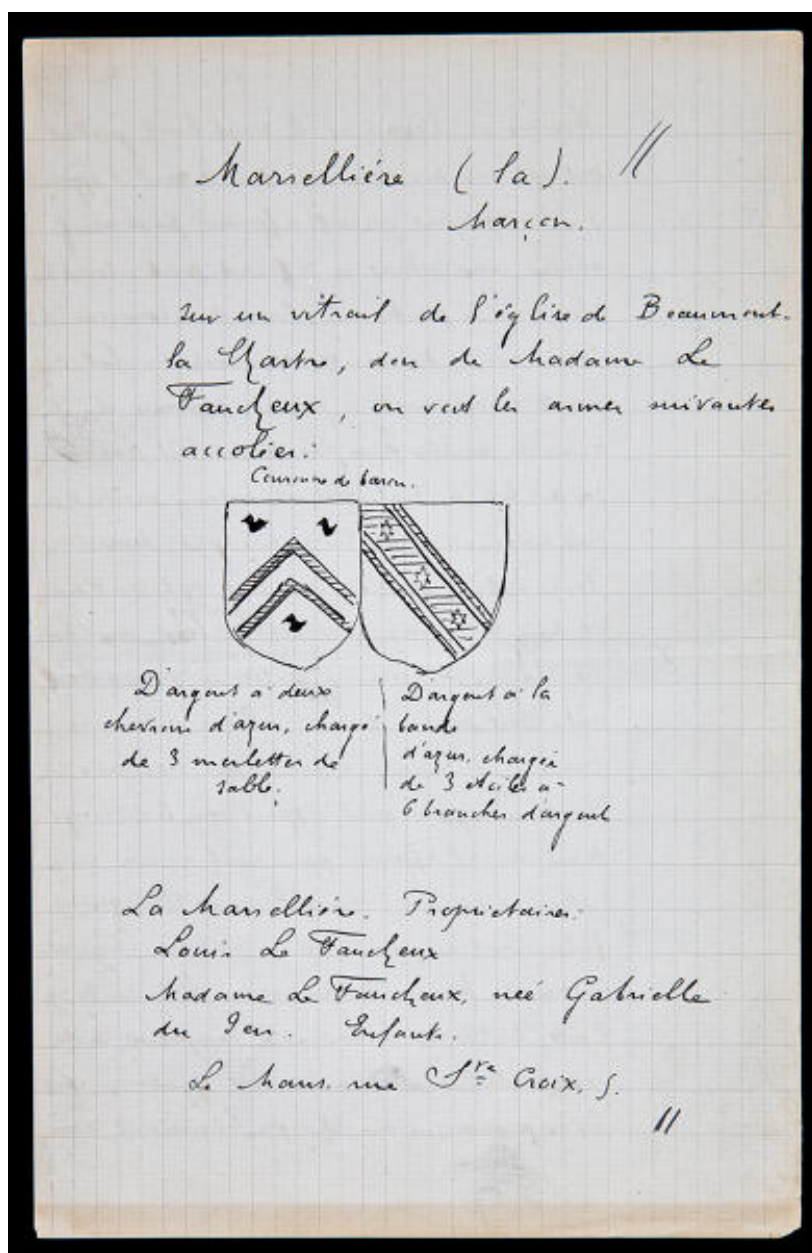 Marsellière (la). //
Marçon.
sur un vitrail de l'église de Beaumont-
la Chartre, don de Madame Le
Faucheux, on voit les armes suivantes
accolées:
Couronne de baron.
D'argent à deux
chevrons d'azur, chargé
de 3 merlettes de
sable.
D'argent à la
bande
d'azur, chargée
de 3 étoiles à
6 branches d'argent
La Marsellière. Propriétaires:
Louis Le Faucheux
Madame Le Faucheux, née Gabrielle
du Jeu. Enfants.
Le Mans. rue Ste Croix, 5.
11